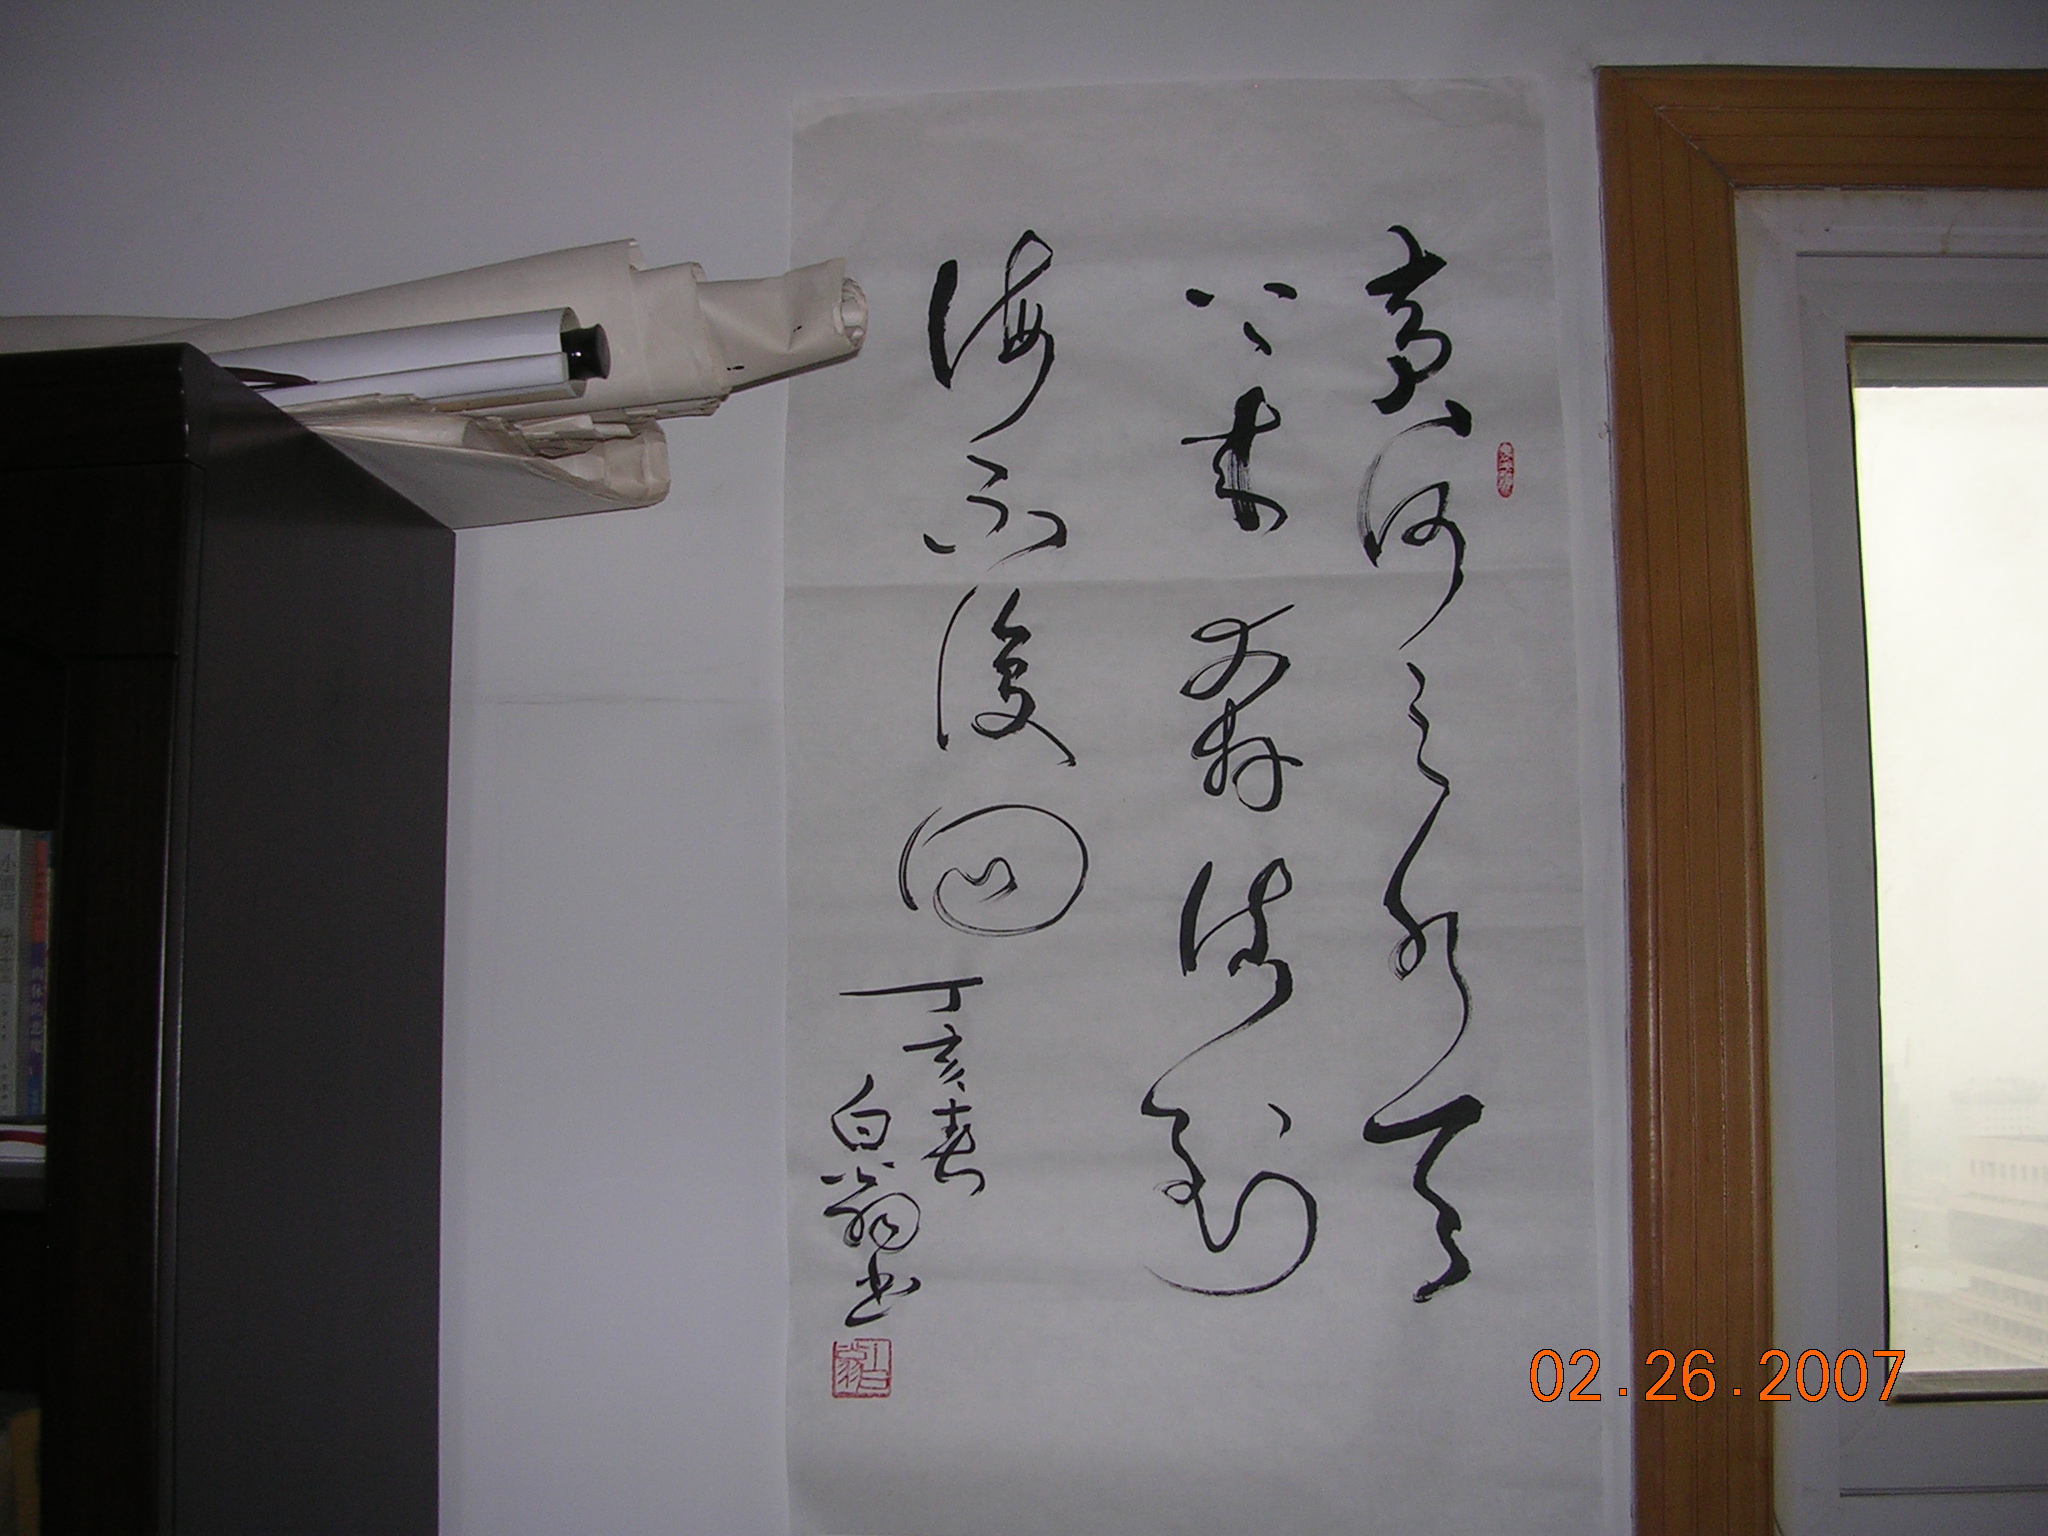 黄河之水天
上来奔流到
海不復回
丁亥春
白翁书
02.26.2007